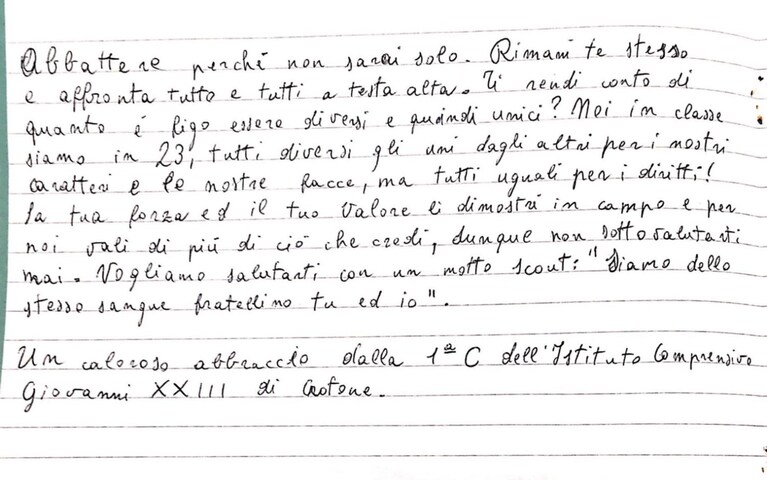 Abbattere perché non sarai solo. Rimani te stesso
e affronta tutto e tutti a testa alta. Ti rendi conto di
quanto è figo essere diversi e quindi unici? Noi in classe
siamo in 23, tutti diversi gli uni dagli altri per i nostri
caratteri e le nostre facce, ma tutti uguali per i diritti!
la tua forza ed il tuo valore li dimostri in campo e per
noi vali di più di ciò che credi, dunque non sottovalutarti
mai. Vogliamo salutarti con un motto scout: "Siamo dello
stesso sangue fratellino tu ed io".
Un caloroso abbraccio dalla 1ª C dell'Istituto Comprensivo
Giovanni XXIII di Crotone.